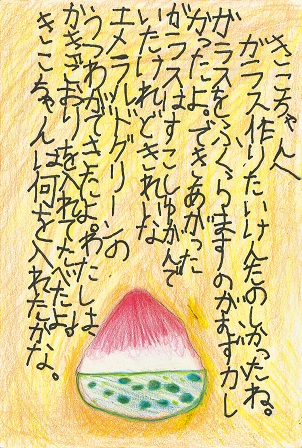 きこちゃんへ
ガラス作りたいけんたのしかったね。
ガラスをふくらますのがむずかし
かったよ。できあがった
ガラスはすこしゆがんで
いたけれどきれいな
エメラルドグリーンの
うつわができたよ。わたしは、
かきごおりを入れてたべたよ。
きこちゃんは何を入れたかな。